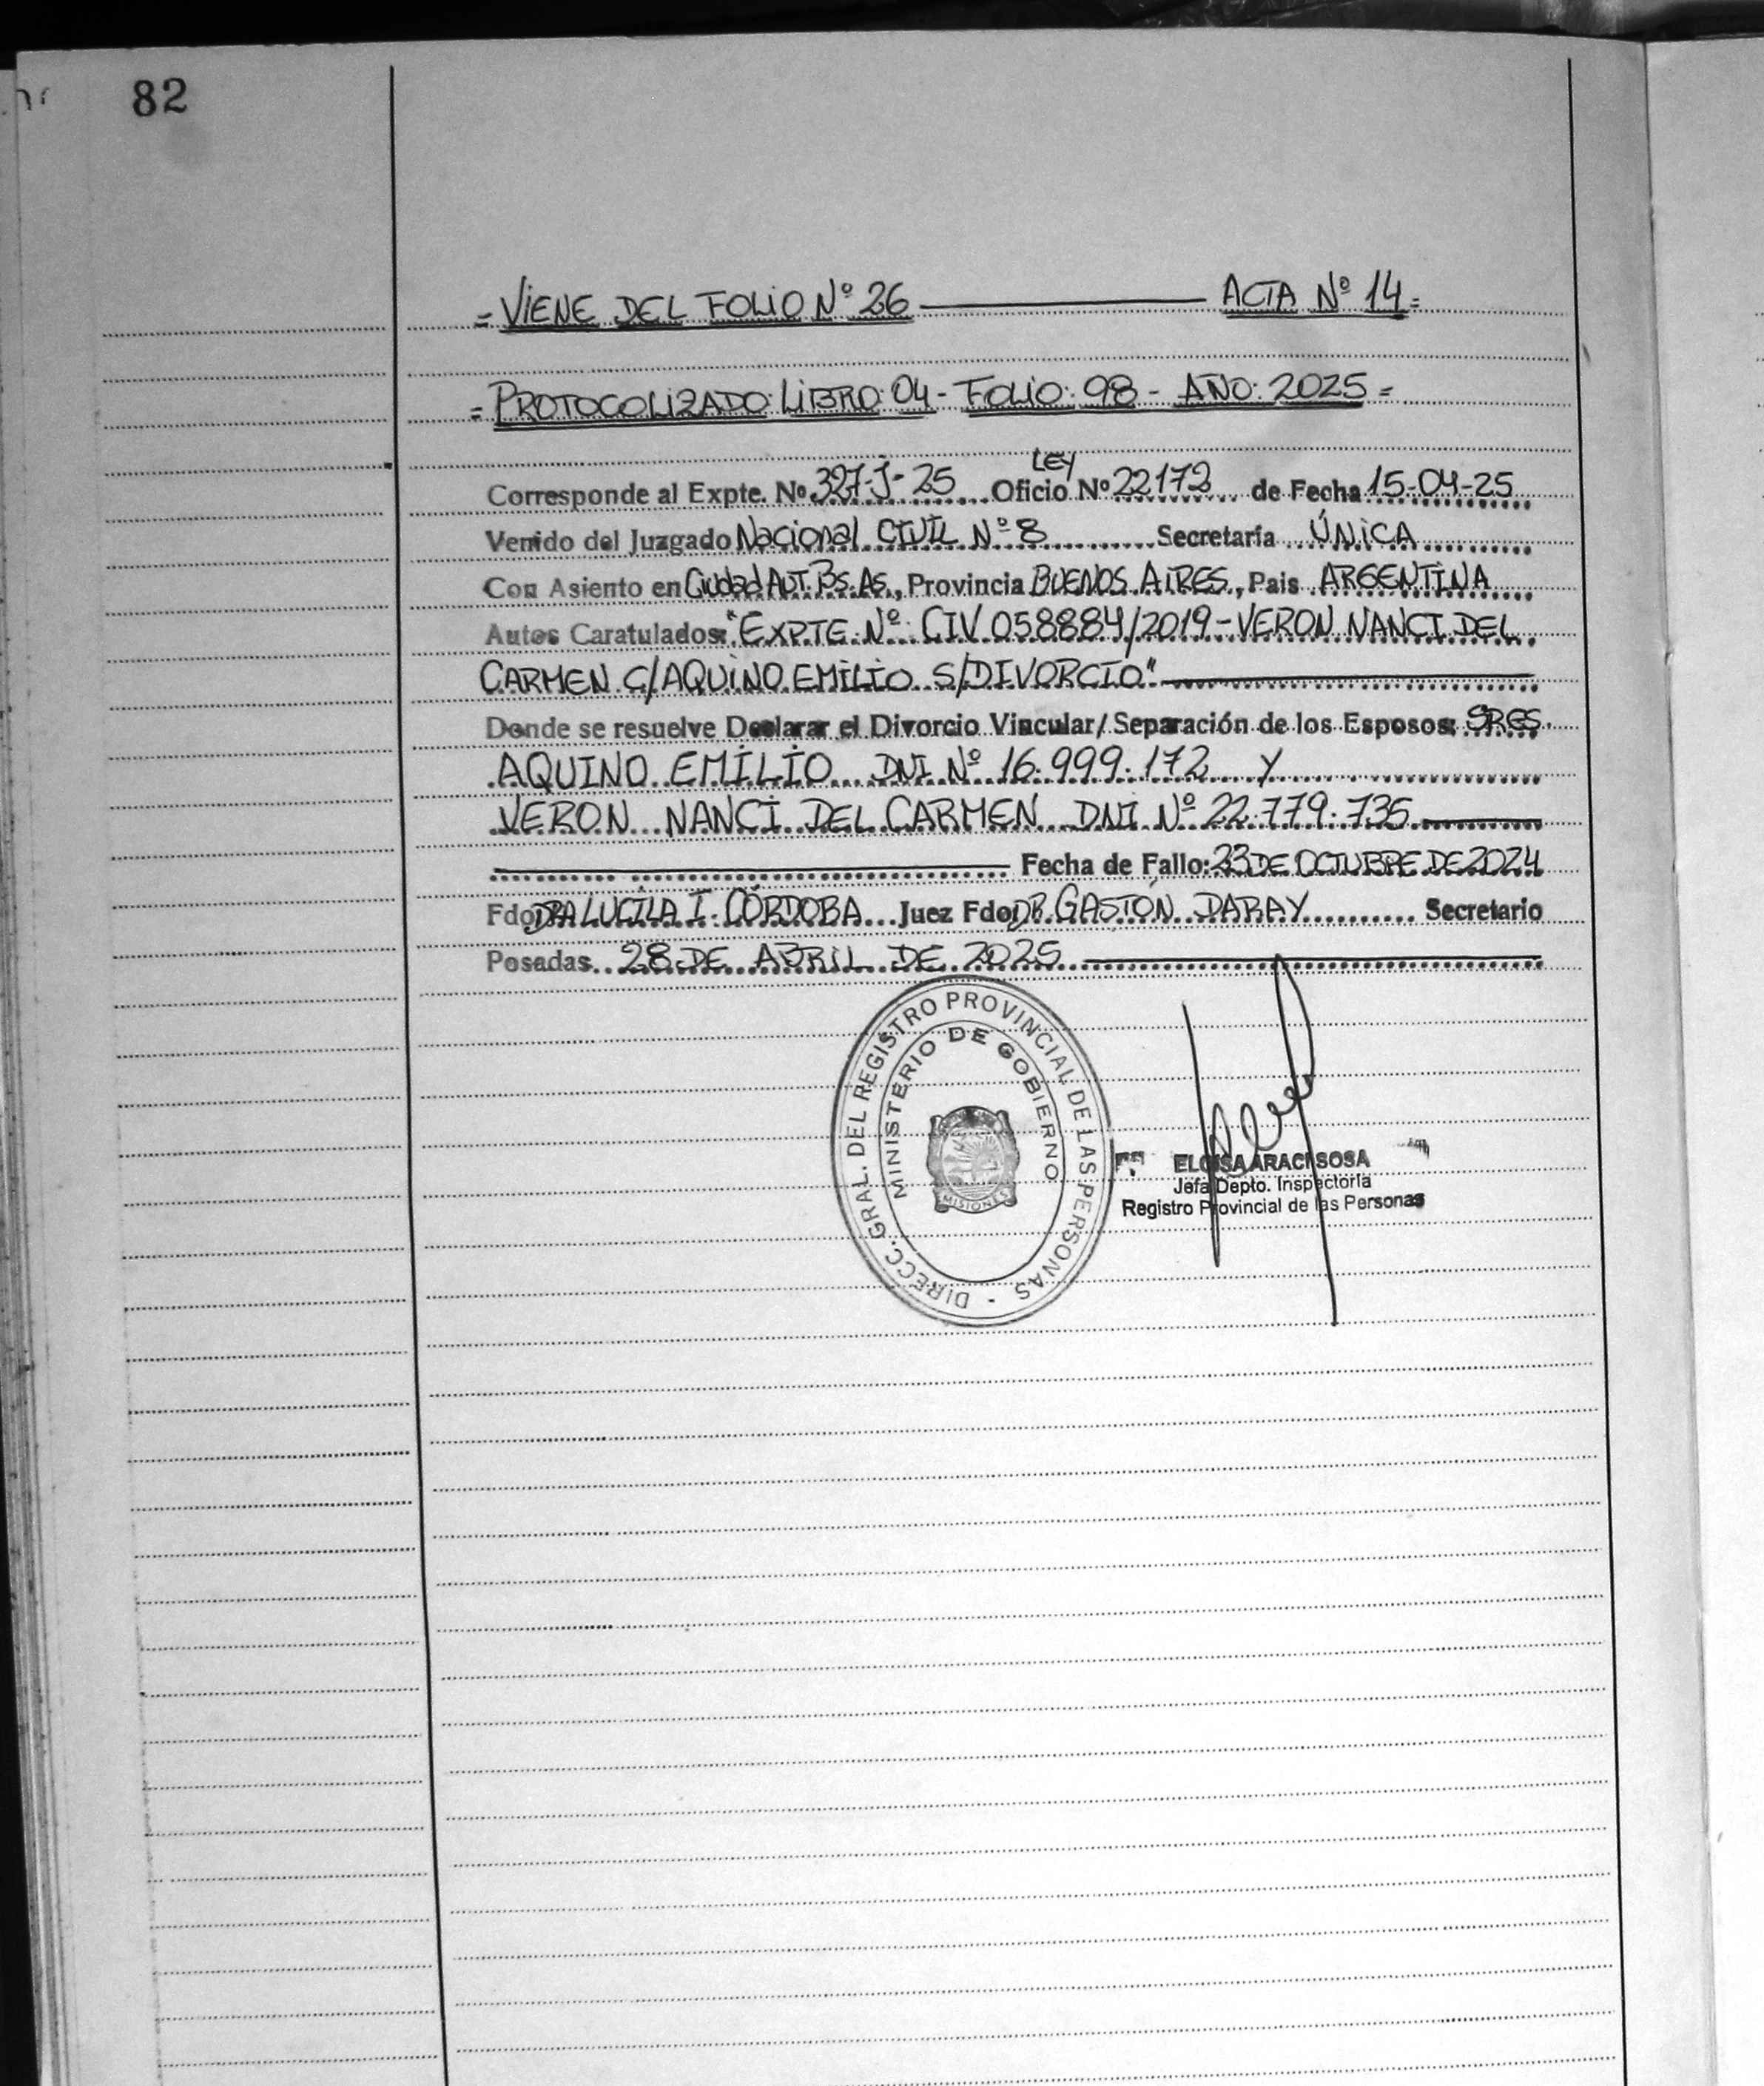 82
= VIENE DEL FOLIO Nº 26 ACTA Nº 14 =
= PROTOCOLIZADO: LIBRO: 04 - FOLIO: 98 - AÑO: 2025 =
LEY
Corresponde al Expte. Nº 327-J-25 Oficio Nº 22172 de Fecha 15-04-25
Venido del Juzgado Nacional CIVIL Nº 8 Secretaría ÚNICA
Con Asiento en Ciudad AUT. BS. AS., Provincia BUENOS AIRES, Pais ARGENTINA
Autos Caratulados: "EXPTE. Nº CIV 058884/2019 - VERON NANCI DEL
CARMEN C/AQUINO EMILIO S/DIVORCIO"
Donde se resuelve Declarar el Divorcio Vincular/Separación de los Esposos: SRES.
AQUINO EMILIO DNI Nº 16.999.172 Y
VERON NANCI DEL CARMEN DNI Nº 22.779.735
Fecha de Fallo: 23 DE OCTUBRE DE 2024
Fdo. DRA LUCILA I. CÓRDOBA Juez Fdo. DR. GASTÓN DARAY Secretario
Posadas 28 DE ABRIL DE 2025
DIRECC. GRAL. DEL REGISTRO PROVINCIAL DE LAS PERSONAS -
MINISTERIO DE GOBIERNO
MISIONES
ELOISA ARACI SOSA
Jefa Depto. Inspectoria
Registro Provincial de las Personas